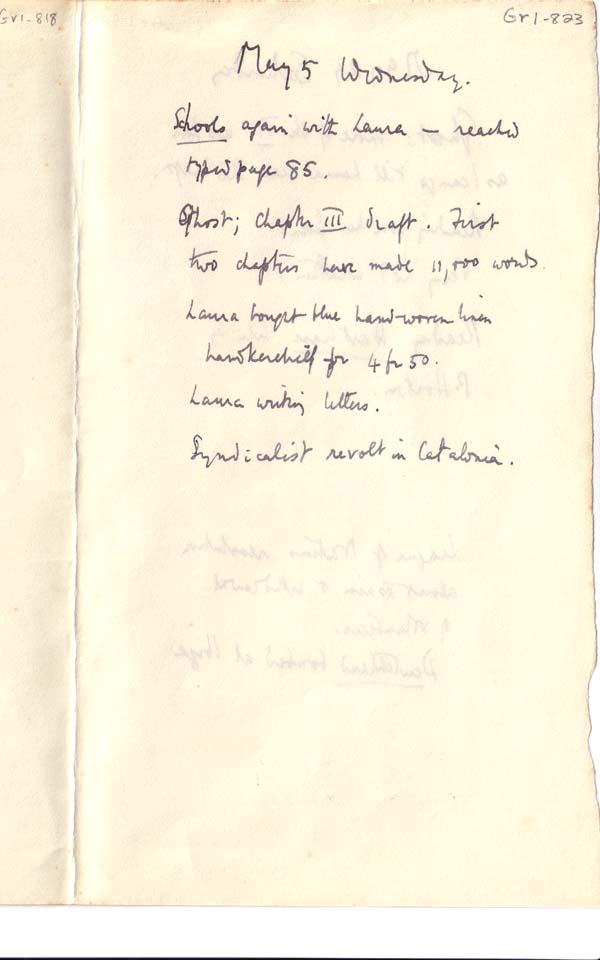 Gr1-818
Gr1-823
May 5 Wednesday.
Schools again with Laura — reached
typed page 85.
Ghost; chapter III draft. First
two chapters have made 11,500 words.
Laura bought blue hand-woven linen
handkerchief for 4 fr 50.
Laura writing letters.
Syndicalist revolt in Catalonia.